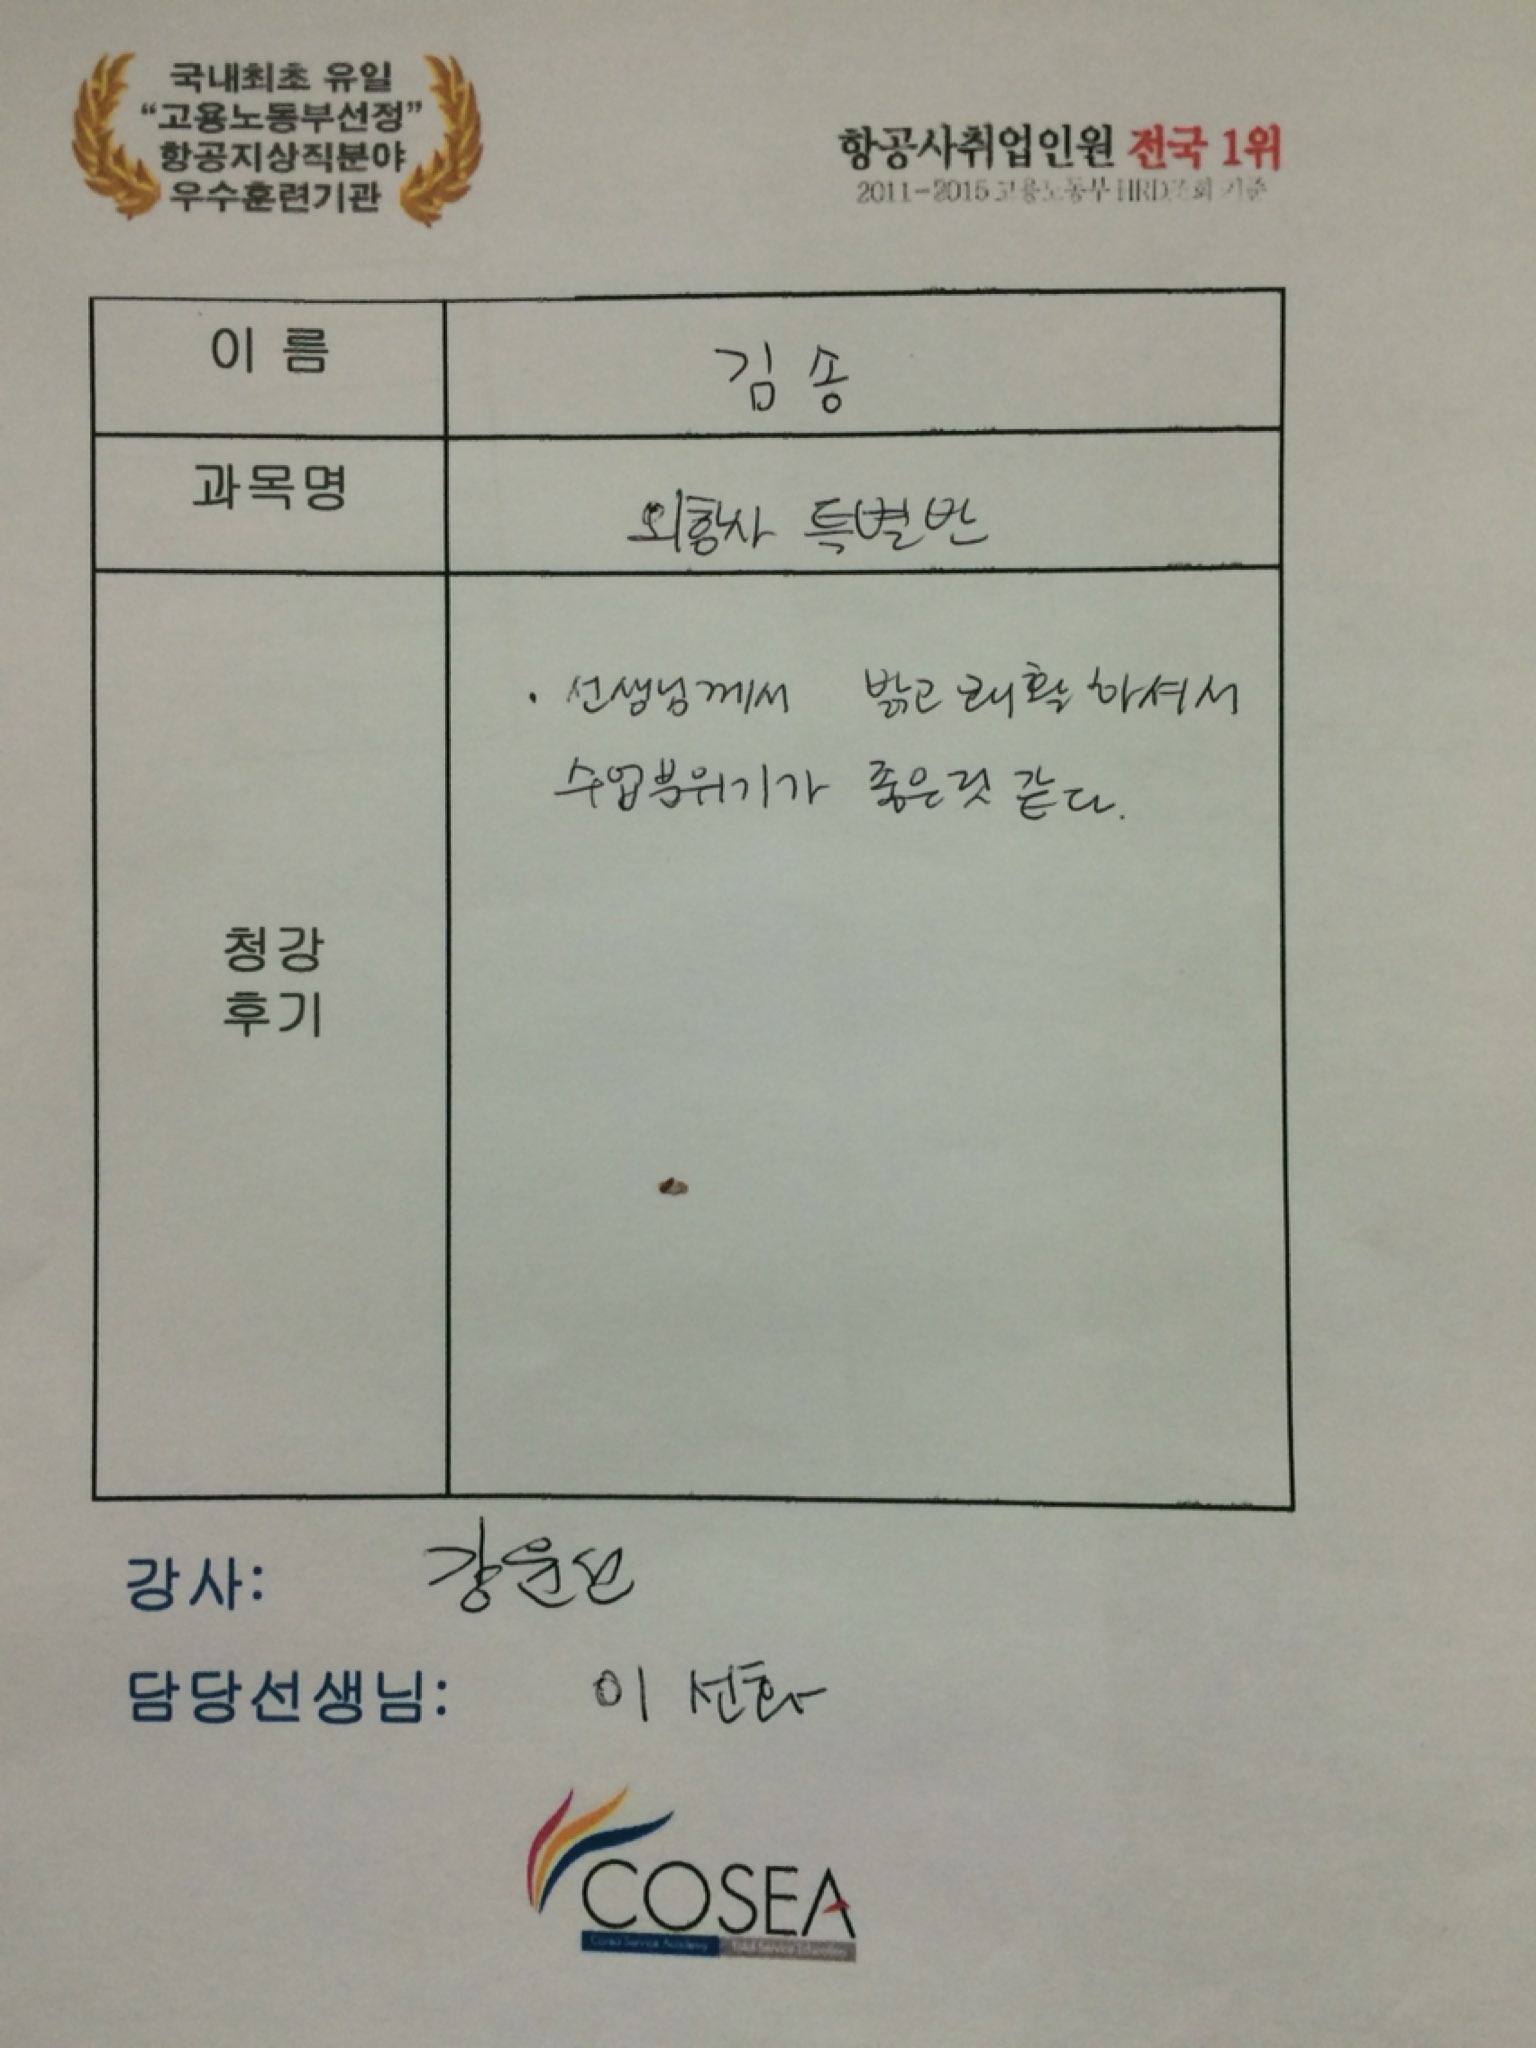 국내최초 유일
“고용노동부선정”
항공지상직분야
우수훈련기관
항공사취업인원 전국 1위
2011-2015 고용노동부 HRD조회 기준
이 름
김 송
과목명
외항사 특별반
· 선생님께서 밝고 쾌활하셔서
수업분위기가 좋은것 같다.
청강
후기
강사:
담당선생님: 이 선화
COSEA
Cosea Service Academy Total Service Education